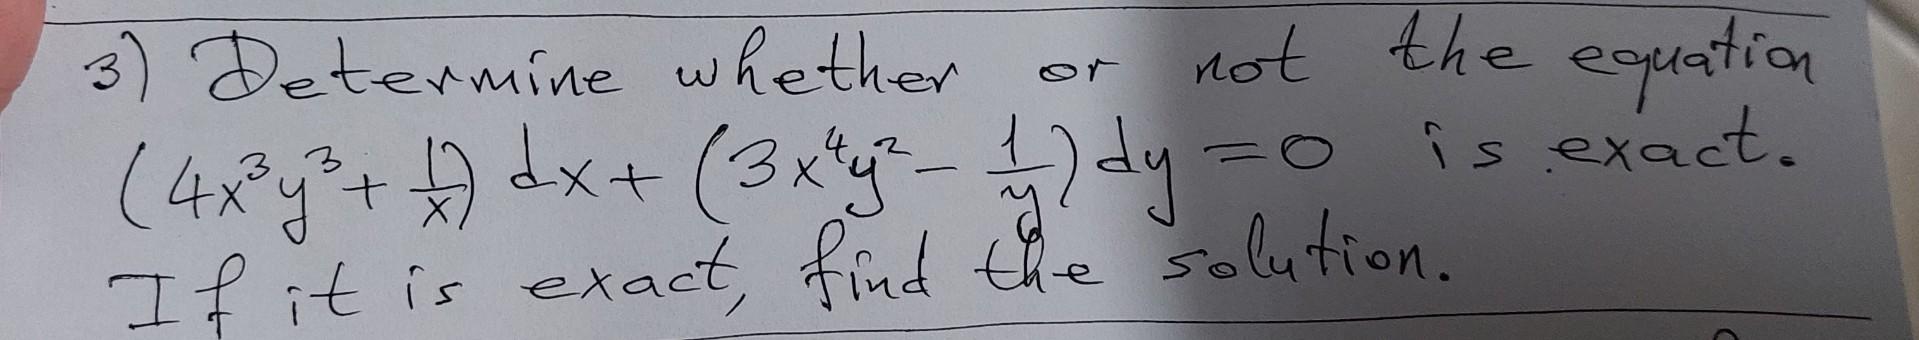 3) Determine whether or not the equation
(4x³y³ + 1/x) dx + (3x⁴y² - 1/y) dy = 0 is exact.
If it is exact, find the solution.